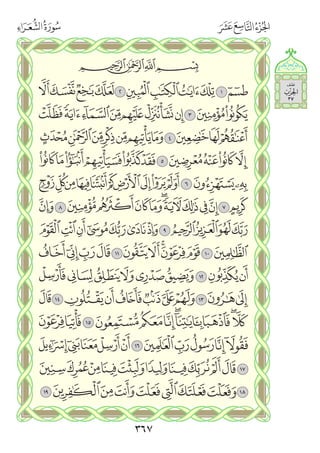 الجُزْءُ التَّاسِعَ عَشَرَ سُورَةُ الشُّعَرَاءِ
بِسْمِ ٱللَّهِ ٱلرَّحْمَٰنِ ٱلرَّحِيمِ
الحِزْب
٣٧
طسٓمٓ ١ تِلْكَ ءَايَٰتُ ٱلْكِتَٰبِ ٱلْمُبِينِ ٢ لَعَلَّكَ بَٰخِعٌ نَّفْسَكَ أَلَّا
يَكُونُوا۟ مُؤْمِنِينَ ٣ إِن نَّشَأْ نُنَزِّلْ عَلَيْهِم مِّنَ ٱلسَّمَآءِ ءَايَةً فَظَلَّتْ
أَعْنَٰقُهُمْ لَهَا خَٰضِعِينَ ٤ وَمَا يَأْتِيهِم مِّن ذِكْرٍ مِّنَ ٱلرَّحْمَٰنِ مُحْدَثٍ
إِلَّا كَانُوا۟ عَنْهُ مُعْرِضِينَ ٥ فَقَدْ كَذَّبُوا۟ فَسَيَأْتِيهِمْ أَنۢبَٰٓؤُا۟ مَا كَانُوا۟
بِهِۦ يَسْتَهْزِءُونَ ٦ أَوَلَمْ يَرَوْا۟ إِلَى ٱلْأَرْضِ كَمْ أَنۢبَتْنَا فِيهَا مِن كُلِّ زَوْجٍ
كَرِيمٍ ٧ إِنَّ فِى ذَٰلِكَ لَءَايَةً ۖ وَمَا كَانَ أَكْثَرُهُم مُّؤْمِنِينَ ٨ وَإِنَّ
رَبَّكَ لَهُوَ ٱلْعَزِيزُ ٱلرَّحِيمُ ٩ وَإِذْ نَادَىٰ رَبُّكَ مُوسَىٰٓ أَنِ ٱئْتِ ٱلْقَوْمَ
ٱلظَّٰلِمِينَ ١٠ قَوْمَ فِرْعَوْنَ ۚ أَلَا يَتَّقُونَ ١١ قَالَ رَبِّ إِنِّىٓ أَخَافُ
أَن يُكَذِّبُونِ ١٢ وَيَضِيقُ صَدْرِى وَلَا يَنطَلِقُ لِسَانِى فَأَرْسِلْ
إِلَىٰ هَٰرُونَ ١٣ وَلَهُمْ عَلَىَّ ذَنۢبٌ فَأَخَافُ أَن يَقْتُلُونِ ١٤ قَالَ
كَلَّا ۖ فَٱذْهَبَا بِـَٔايَٰتِنَآ ۖ إِنَّا مَعَكُم مُّسْتَمِعُونَ ١٥ فَأْتِيَا فِرْعَوْنَ
فَقُولَآ إِنَّا رَسُولُ رَبِّ ٱلْعَٰلَمِينَ ١٦ أَنْ أَرْسِلْ مَعَنَا بَنِىٓ إِسْرَٰٓءِيلَ
١٧ قَالَ أَلَمْ نُرَبِّكَ فِينَا وَلِيدًا وَلَبِثْتَ فِينَا مِنْ عُمُرِكَ سِنِينَ
١٨ وَفَعَلْتَ فَعْلَتَكَ ٱلَّتِى فَعَلْتَ وَأَنتَ مِنَ ٱلْكَٰفِرِينَ ١٩
٣٦٧